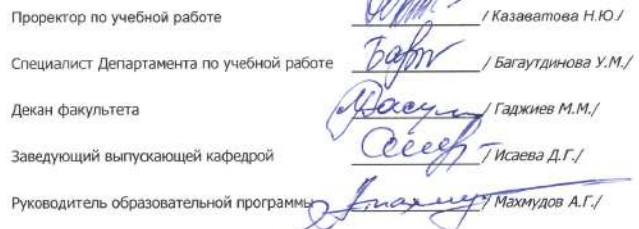 Проректор по учебной работе / Казаватова Н.Ю./
Специалист Департамента по учебной работе / Багаутдинова У.М./
Декан факультета / Гаджиев М.М./
Заведующий выпускающей кафедрой / Исаева Д.Г./
Руководитель образовательной программы / Махмудов А.Г./